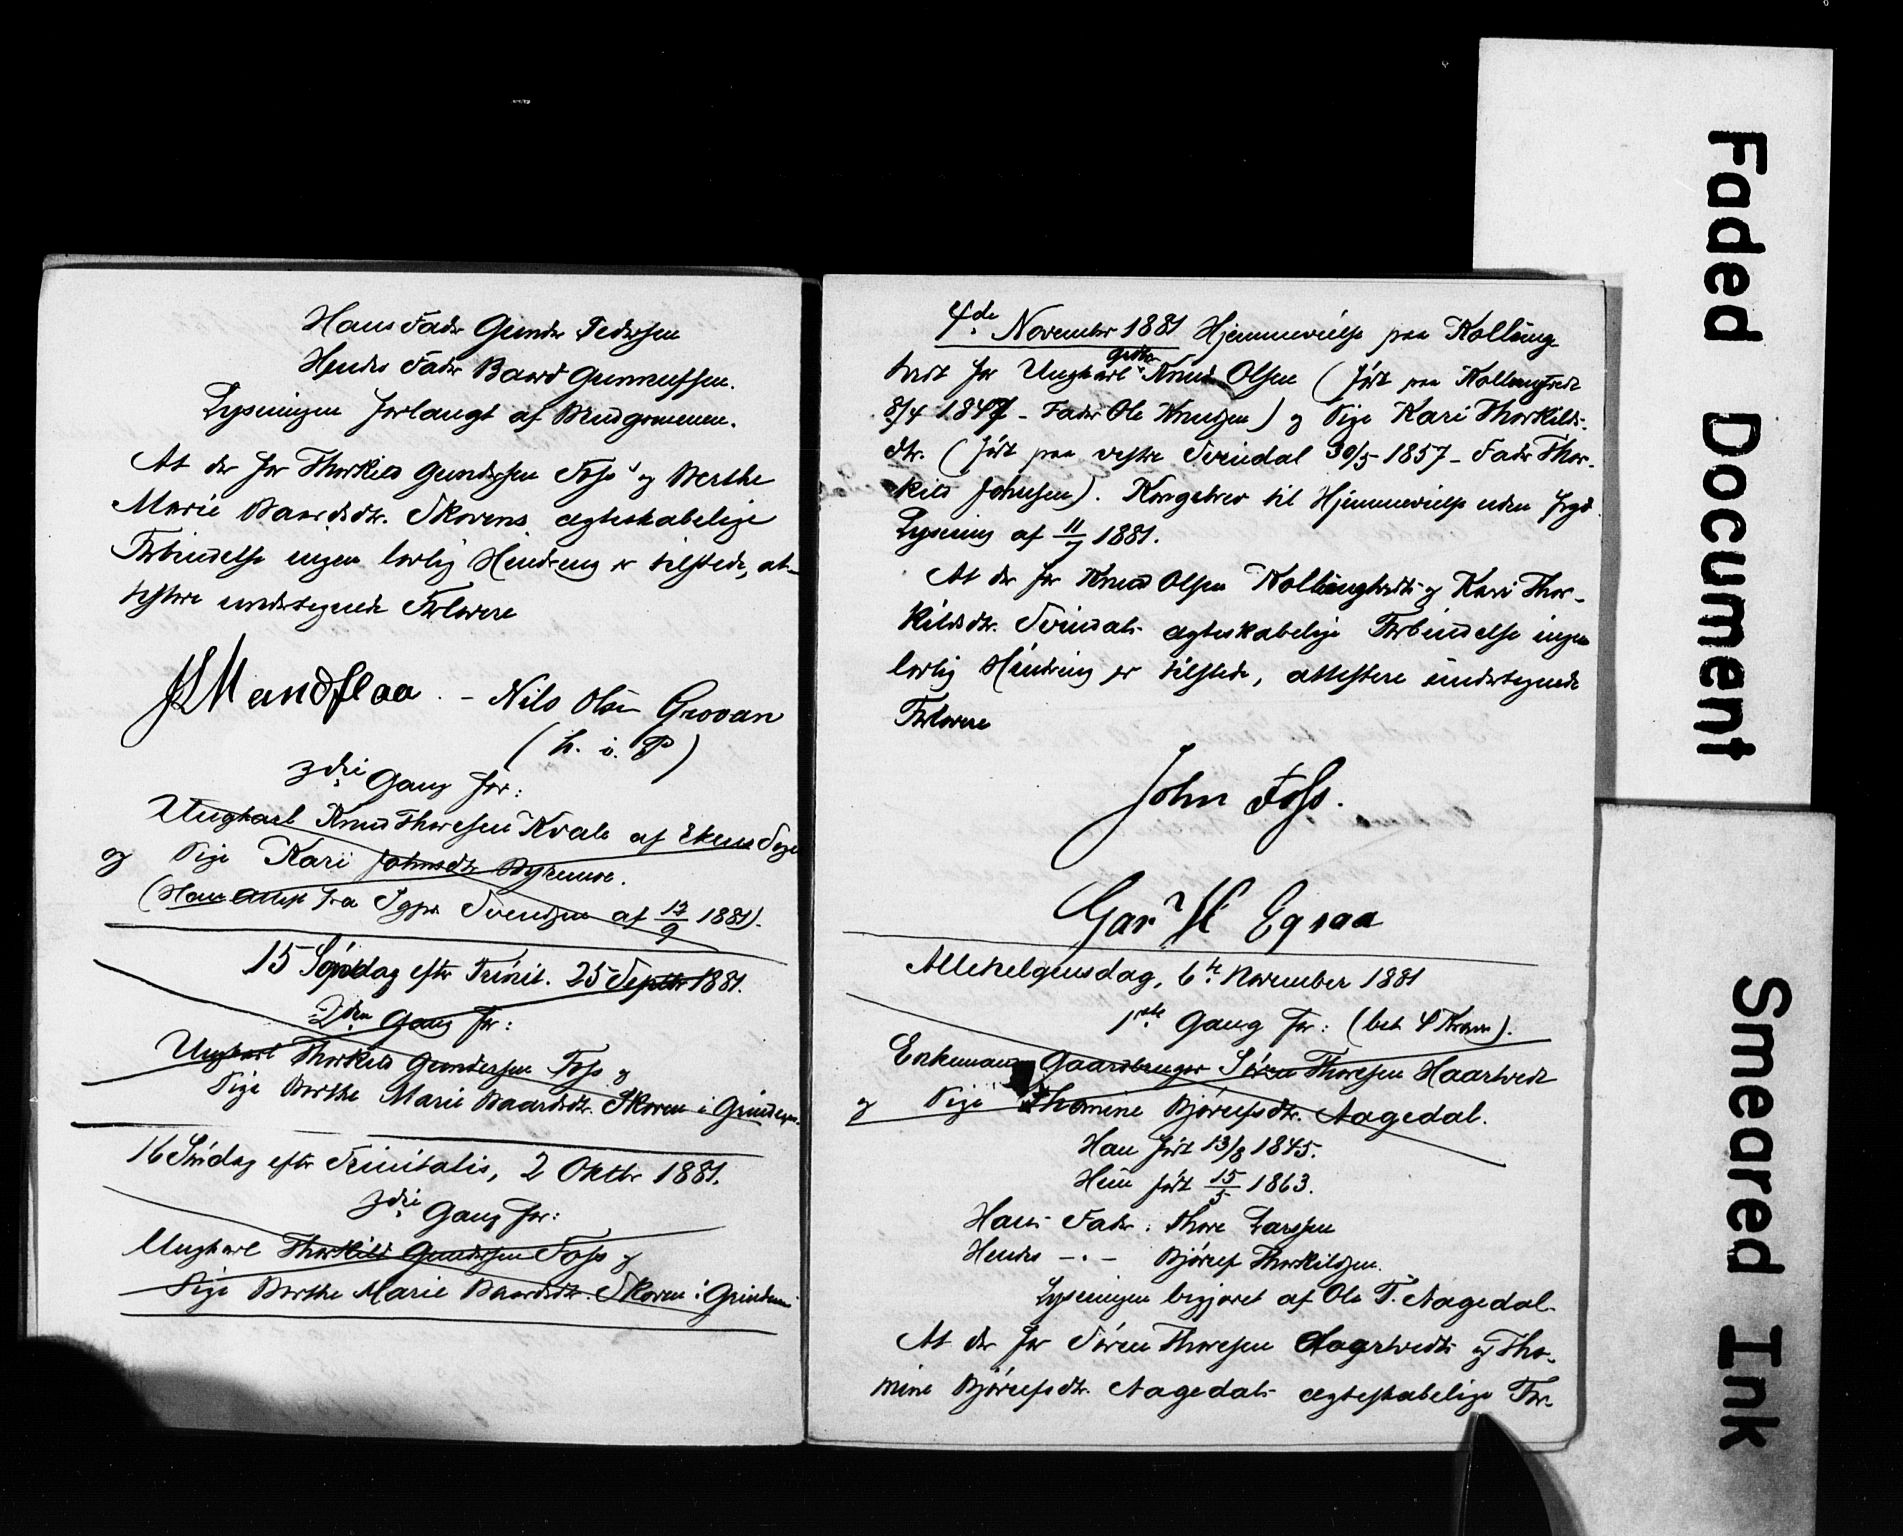 Hans Fader Gunder Pedersen
Hendes Fader Baard Gunnufsen.
Lysningen forlangt af Brudgommen.
At der for Thorkild Gundersen Foss' og Berthe
Marie Baardsdtr. Skorens ægteskabelige
Forbindelse ingen lovlig Hindring er tilstede, at-
testere undertegnede Forlovere
Mandflaa. - Nils Olsen Grovan
(h. i. P)
3die Gang for:
Ungkarl Knud Thoresen Kvale af Ekens Sogn
og Pige Kari Johnsdtr Byremo.
(Hans Attest fra Sgpr. Svendsen af 12/9 1881).
15 Søndag efter Trinit. 25 Septbr 1881.
2den Gang for:
Ungkarl Thorkild Gundersen Foss og
Pige Berthe Marie Baardsdtr. Skoren i Grindem.
16 Søndag efter Trinitatis, 2 Oktbr 1881.
3die Gang for:
Ungkarl Thorkild Gundersen Foss og
Pige Berthe Marie Baardsdtr. Skoren i Grindem
4de November 1881 Hjemmevielse paa Kolling
tvedt for Ungkarl Gdbr. Knud Olsen (født paa Kollingtvedt
8/4 1847 - Fader Ole Knudsen) og Pige Kari Thorkilds-
dtr. (født paa vestre Svindal 30/5 1857 - Fader Thor-
kild Johnsen). Kongebrev til Hjemmevielse uden
Lysning af 11/7 1881.
At der for Knud Olsen Kollingtvedts og Kari Thor-
kildsdtr. Svindals ægteskabelige Forbindelse ingen
lovlig Hindring er tilstede, attestere undertegnede
Forlovere
John Foss.
Egsaa
Allehelgensdag, 6te November 1881
1ste Gang for: (bet. 4 Kroner).
Enkemand Gaardbruger Søren Thoresen Haartvedt
og Pige Thomine Bjørufsdtr. Aagedal.
Han født 13/8 1845.
Hun født 15/5 1863.
Hans Fader: Thore Larssen
Hendes -"- Bjøruf Thorkildsen.
Lysningen begjæret af Ole T. Aagedal.
At der for Søren Thoresen Haartvedts og Tho-
mine Bjørufsdtr. Aagedals ægteskabelige For-
Faded Document
Smeared Ink